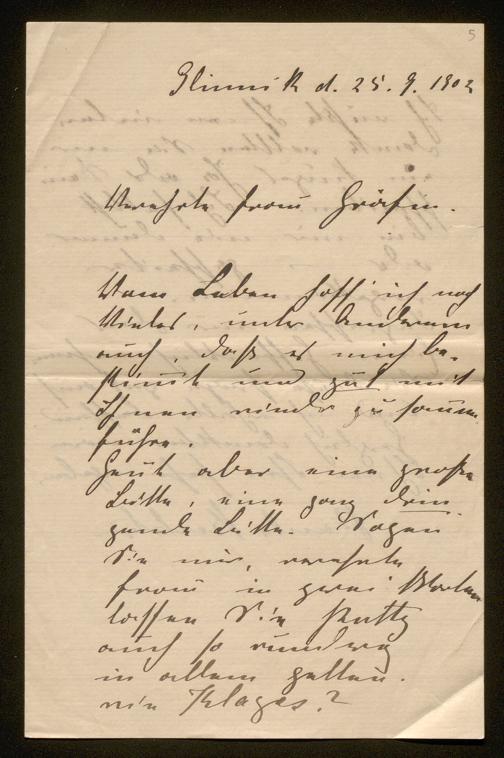 5
Glinnik d. 25. 9. 1902
Verehrte Frau Gräfin.
Vom Leben hoff' ich noch
Vieles, unter Anderem
auch, daß es mich be-
stimmt und gut mit
Ihnen wieder zusamm
führe.
Heut aber eine große
Bitte, eine ganz drin
gende Bitte. Sagen
Sie mir, verehrte
Frau in zwei Worten
lassen Sie
auch so rundweg
in allem gelten.
wie Klages?